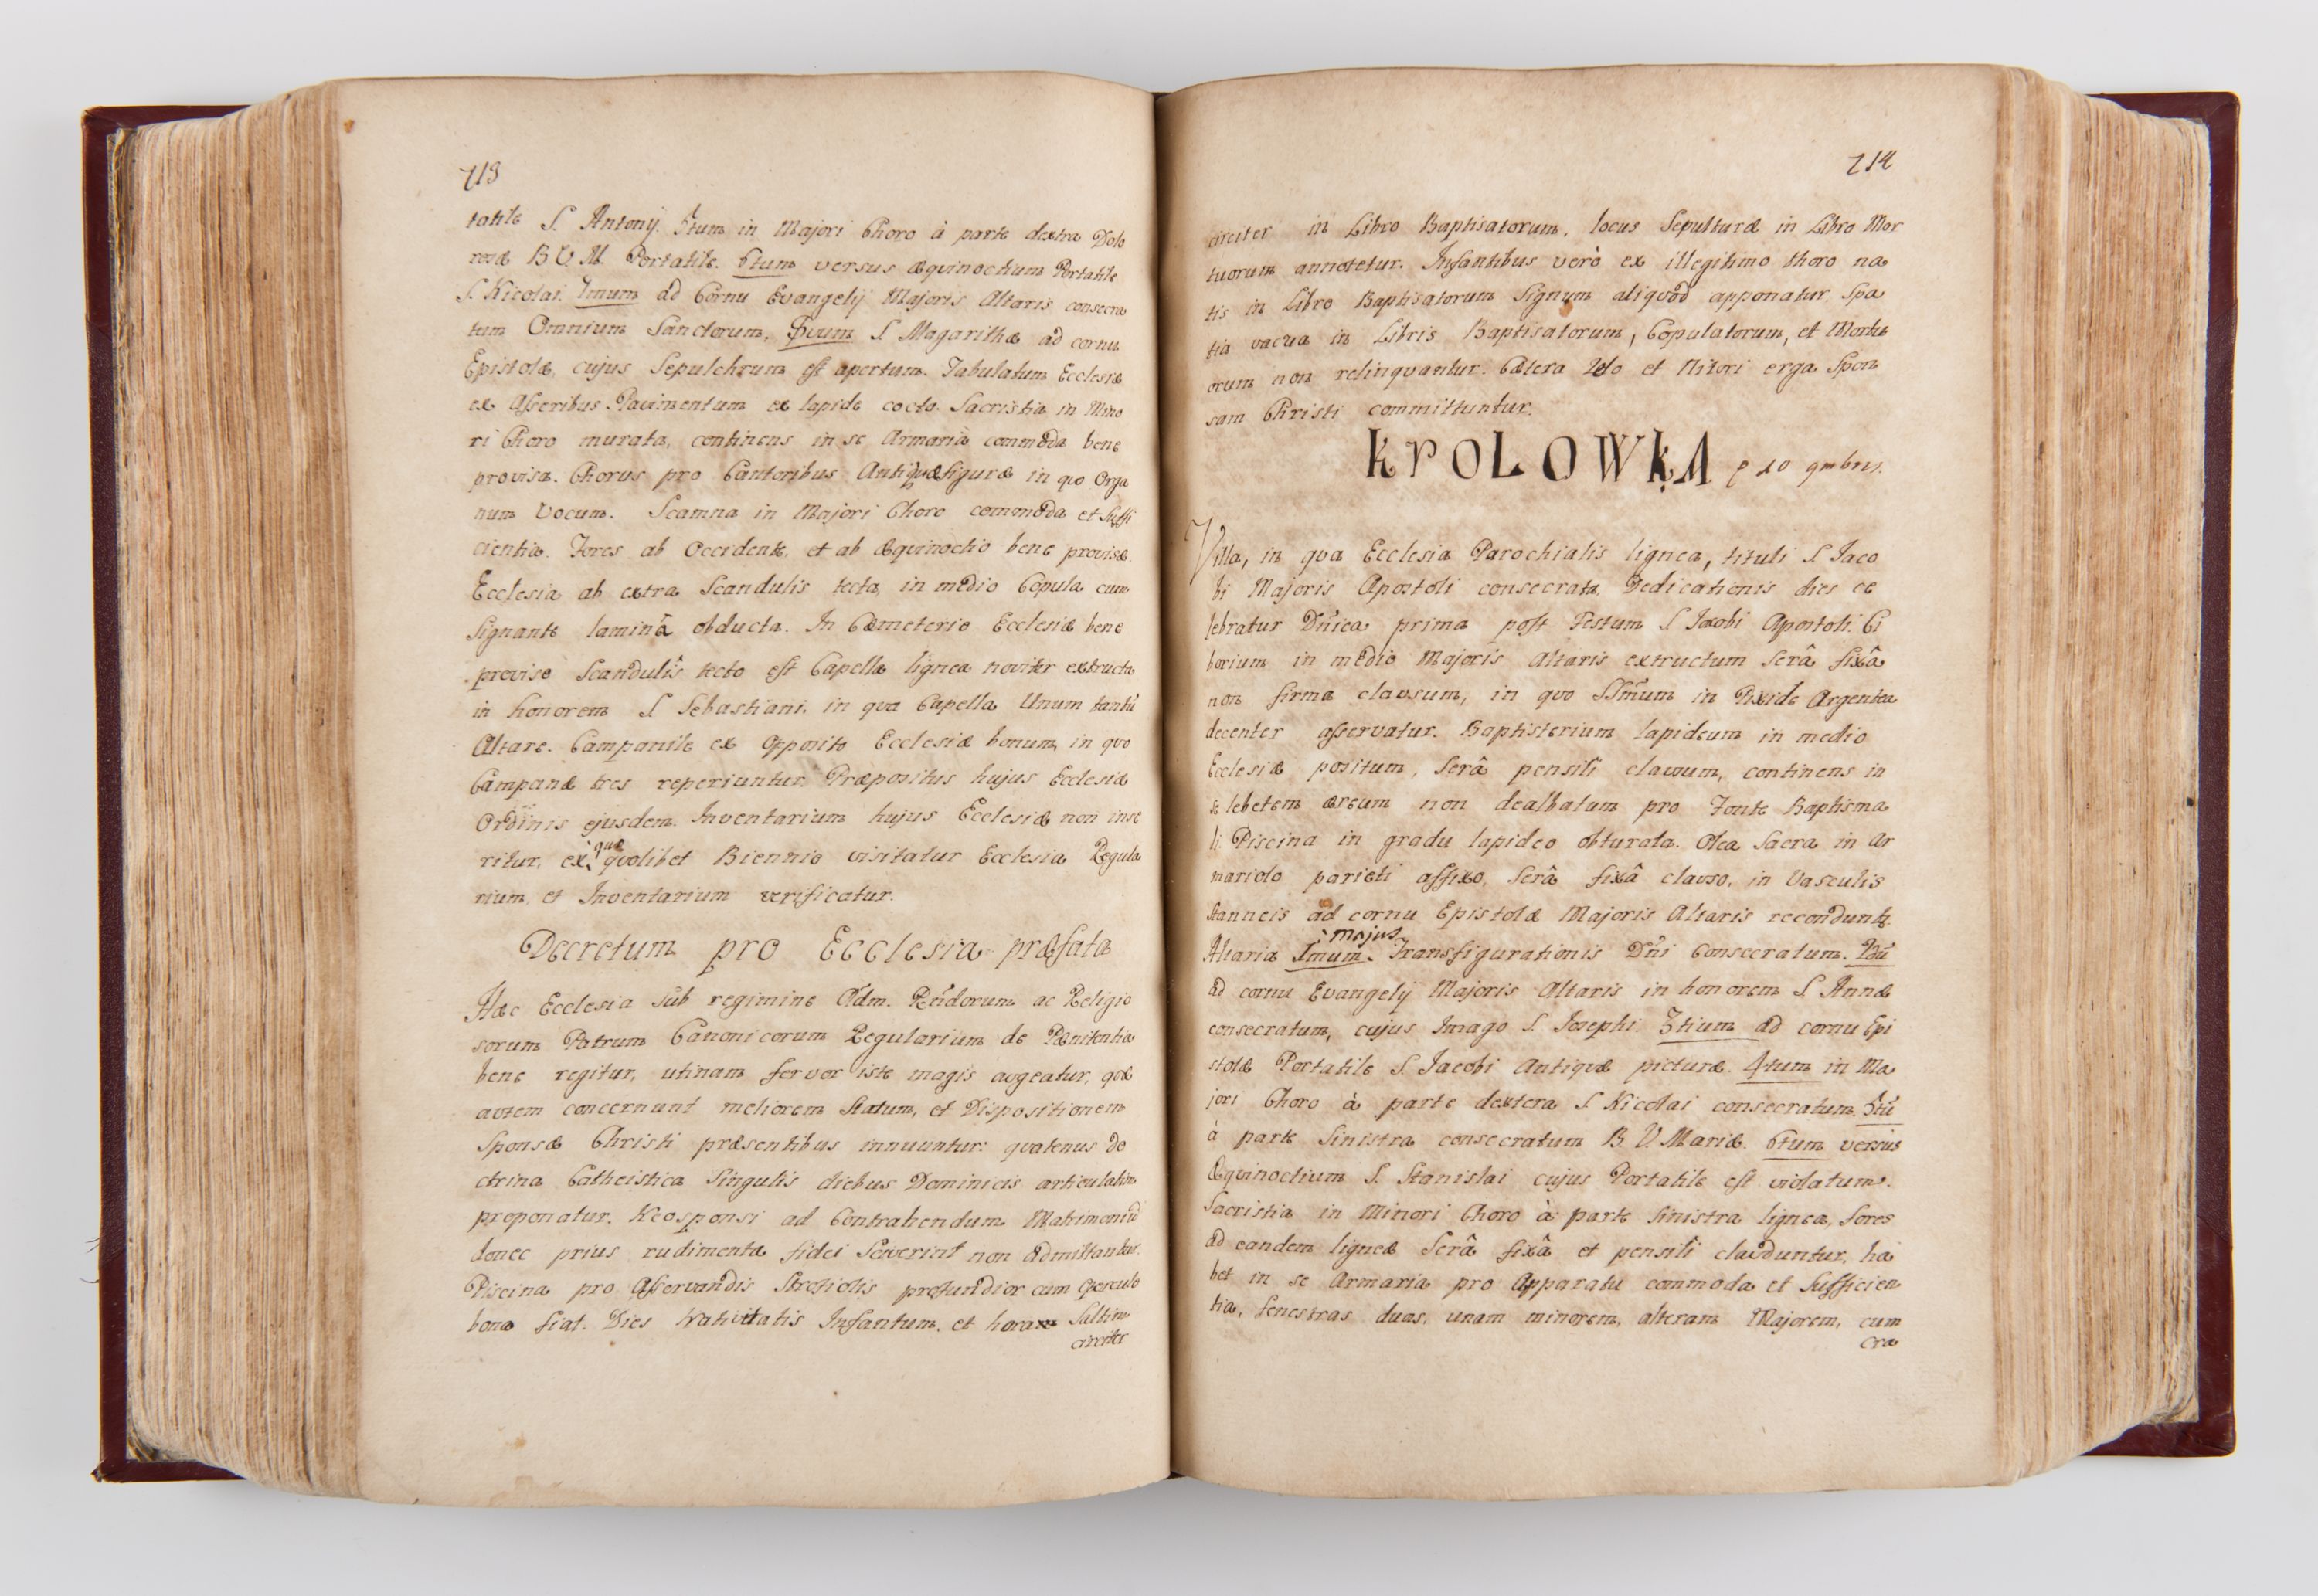 713
tatile S. Antonij. 5tum in Majori Choro à parte dextra Dolo
rosæ B V M. Portatile. 6tum versus æquinoctium Portatile
S. Nicolai. 7mum ad Cornu Evangelij Majoris Altaris consecra
tum Omnium Sanctorum, 8vum S Magarithæ ad cornu
Epistolæ, cujus Sepulchrum est apertum. Tabulatum Ecclesiæ
ex Asseribus. Pavimentum ex lapide cocto. Sacristia in Mino
ri Choro murata, continens in se Armaria commoda bene
provisa. Chorus pro Cantoribus Antiquæ figuræ in quo Orga
num Vocum. Scamna in Majori Choro commoda et suffi
cientia. Fores ab Occidente, et ab æquinoctio bene provisæ
Ecclesia ab extra Scandulis tecta, in medio Copula cum
Signante laminâ obducta. In Cæmeterio Ecclesiæ bene
proviso Scandulis tecto est Capella lignea noviter extructa
in honorem S Sebastiani. in qua Capella Unum tantũ
Altare. Campanile ex Opposito Ecclesiæ bonum, in quo
Campanæ tres reperiuntur. Præpositus hujus Ecclesiæ
Ordinis ejusdem. Inventarium hujus Ecclesiæ non inse
ritur, ex quolibet Biennio visitatur Ecclesia Regula
que
rium, et Inventarium verificatur.
Decretum pro Ecclesia præfata
Hæc Ecclesia sub regimine Adm. Rndorum ac Religio
sorum Patrum Canonicorum Regularium de Pænitentia
bene regitur, utinam fervor iste magis augeatur, quæ
autem concernunt meliorem Statum, et Dispositionem
Sponsæ Christi præsentibus innuuntur: quatenus do
ctrina Catheistica Singulis diebus Dominicis articulatim
proponatur. Neosponsi ad Contrahendum Matrimoniũ
donec prius rudimenta fidei Sciverint non admittantur.
Piscina pro Asservandis profundior cum Operculo
bono fiat. Dies Nativitatis Infantum, et horam Saltim
circiter
714
circiter in Libro Baptisatorum, locus Sepulturæ in Libro Mor
tuorum annotetur. Infantibus verò ex illegitimo thoro na
tis in Libro Baptisatorum Signum aliquod apponatur, Spa
tia vacua in Libris Baptisatorum, Copulatorum, et Mortu
orum non relinquantur. Cætera Zelo et Nitori erga Spon
sam Christi committuntur.
KROLOWKA 10 9mbris.
Villa, in qua Ecclesia Parochialis lignea, tituli S Jaco
bi Majoris Apostoli consecrata, Dedicationis dies ce
lebratur Dnica prima post Festum S Jacobi Apostoli. Ci
borium in medio Majoris Altaris extructum Serâ fixâ
non firma clausum, in quo SSmum in Pixide Argentea
decenter asservatur. Baptisterium lapideum in medio
Ecclesiæ positum, Serâ pensili clausum, continens in
se lebetem æreum non dealbatum pro Fonte Baptisma
li. Piscina in gradu lapideo obturata. Olea Sacra in Ar
mariolo parieti affixo, Serâ fixâ clauso, in Vasculis
Stanneis ad cornu Epistolæ Majoris Altaris reconduntr.
majus
Altaria 1mum Transfigurationis Dñi consecratum. 2dũ
ad cornu Evangelij Majoris Altaris in honorem S Annæ
consecratum, cujus Imago S. Josephi. 3tium ad cornu Epi
stolæ Portatile S. Jacobi Antiquæ picturæ. 4tum in Ma
jori Choro à parte dextera S Nicolai consecratum. 5tũ
à parte Sinistra consecratum B. V. Mariæ. 6tum versus
Æquinoctium S. Stanislai cujus Portatile est violatum.
Sacristia in Minori Choro à parte Sinistra lignea, fores
ad eandem ligneæ Serâ fixâ et pensili clauduntur, ha
bet in se Armaria pro Apparatu commoda et Sufficien
tia, fenestras duas, unam minorem, alteram Majorem, cum
cra